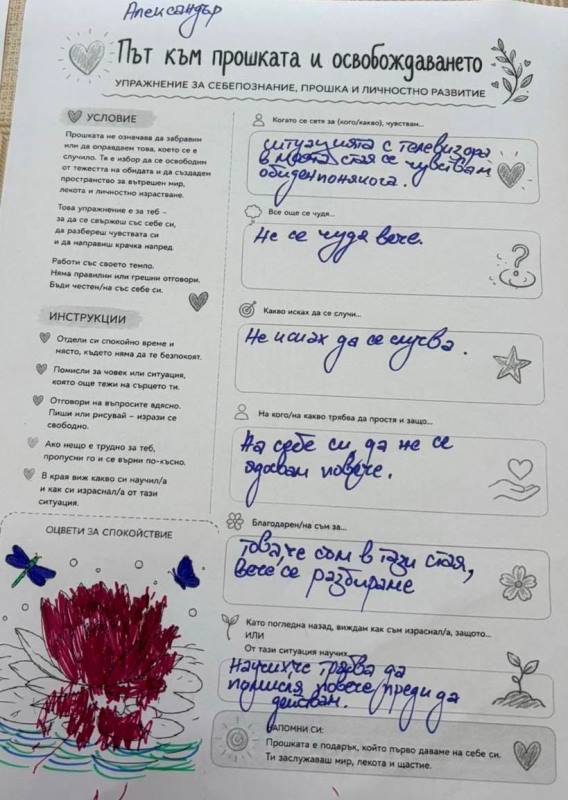 Александър
Път към прошката и освобождаването
УПРАЖНЕНИЕ ЗА СЕБЕПОЗНАНИЕ, ПРОШКА И ЛИЧНОСТНО РАЗВИТИЕ
УСЛОВИЕ
Прошката не означава да забравим
или да оправдаем това, което се е
случило. Тя е избор да се освободим
от тежестта на обидата и да създадем
пространство за вътрешен мир,
лекота и личностно израстване.
Това упражнение е за теб –
за да се свържеш със себе си,
да разбереш чувствата си
и да направиш крачка напред.
Работи със своето темпо.
Няма правилни или грешни отговори.
Бъди честен/на със себе си.
ИНСТРУКЦИИ
Отдели си спокойно време и
място, където няма да те безпокоят.
Помисли за човек или ситуация,
която още тежи на сърцето ти.
Отговори на въпросите вдясно.
Пиши или рисувай – изрази се
свободно.
Ако нещо е трудно за теб,
пропусни го и се върни по-късно.
В края виж какво си научил/а
и как си израснал/а от тази
ситуация.
ОЦВЕТИ ЗА СПОКОЙСТВИЕ
Когато се сетя за (кого/какво), чувствам...
ситуацията с телевизора
в моята стая се чувствам
обиден понякога.
Все още се чудя...
Не се чудя вече.
Какво исках да се случи...
Не исках да се случва.
На кого/на какво трябва да простя и защо...
На себе си да не се
ядавам повече.
Благодарен/на съм за...
Това, че съм в тази стая,
вече се разбираме
Като погледна назад, виждам как съм израснал/а, защото...
ИЛИ
От тази ситуация научих...
Научих че трябва да
помисля повече преди да
действам.
НАПОМНИ СИ:
Прошката е подарък, който първо даваме на себе си.
Ти заслужаваш мир, лекота и щастие.